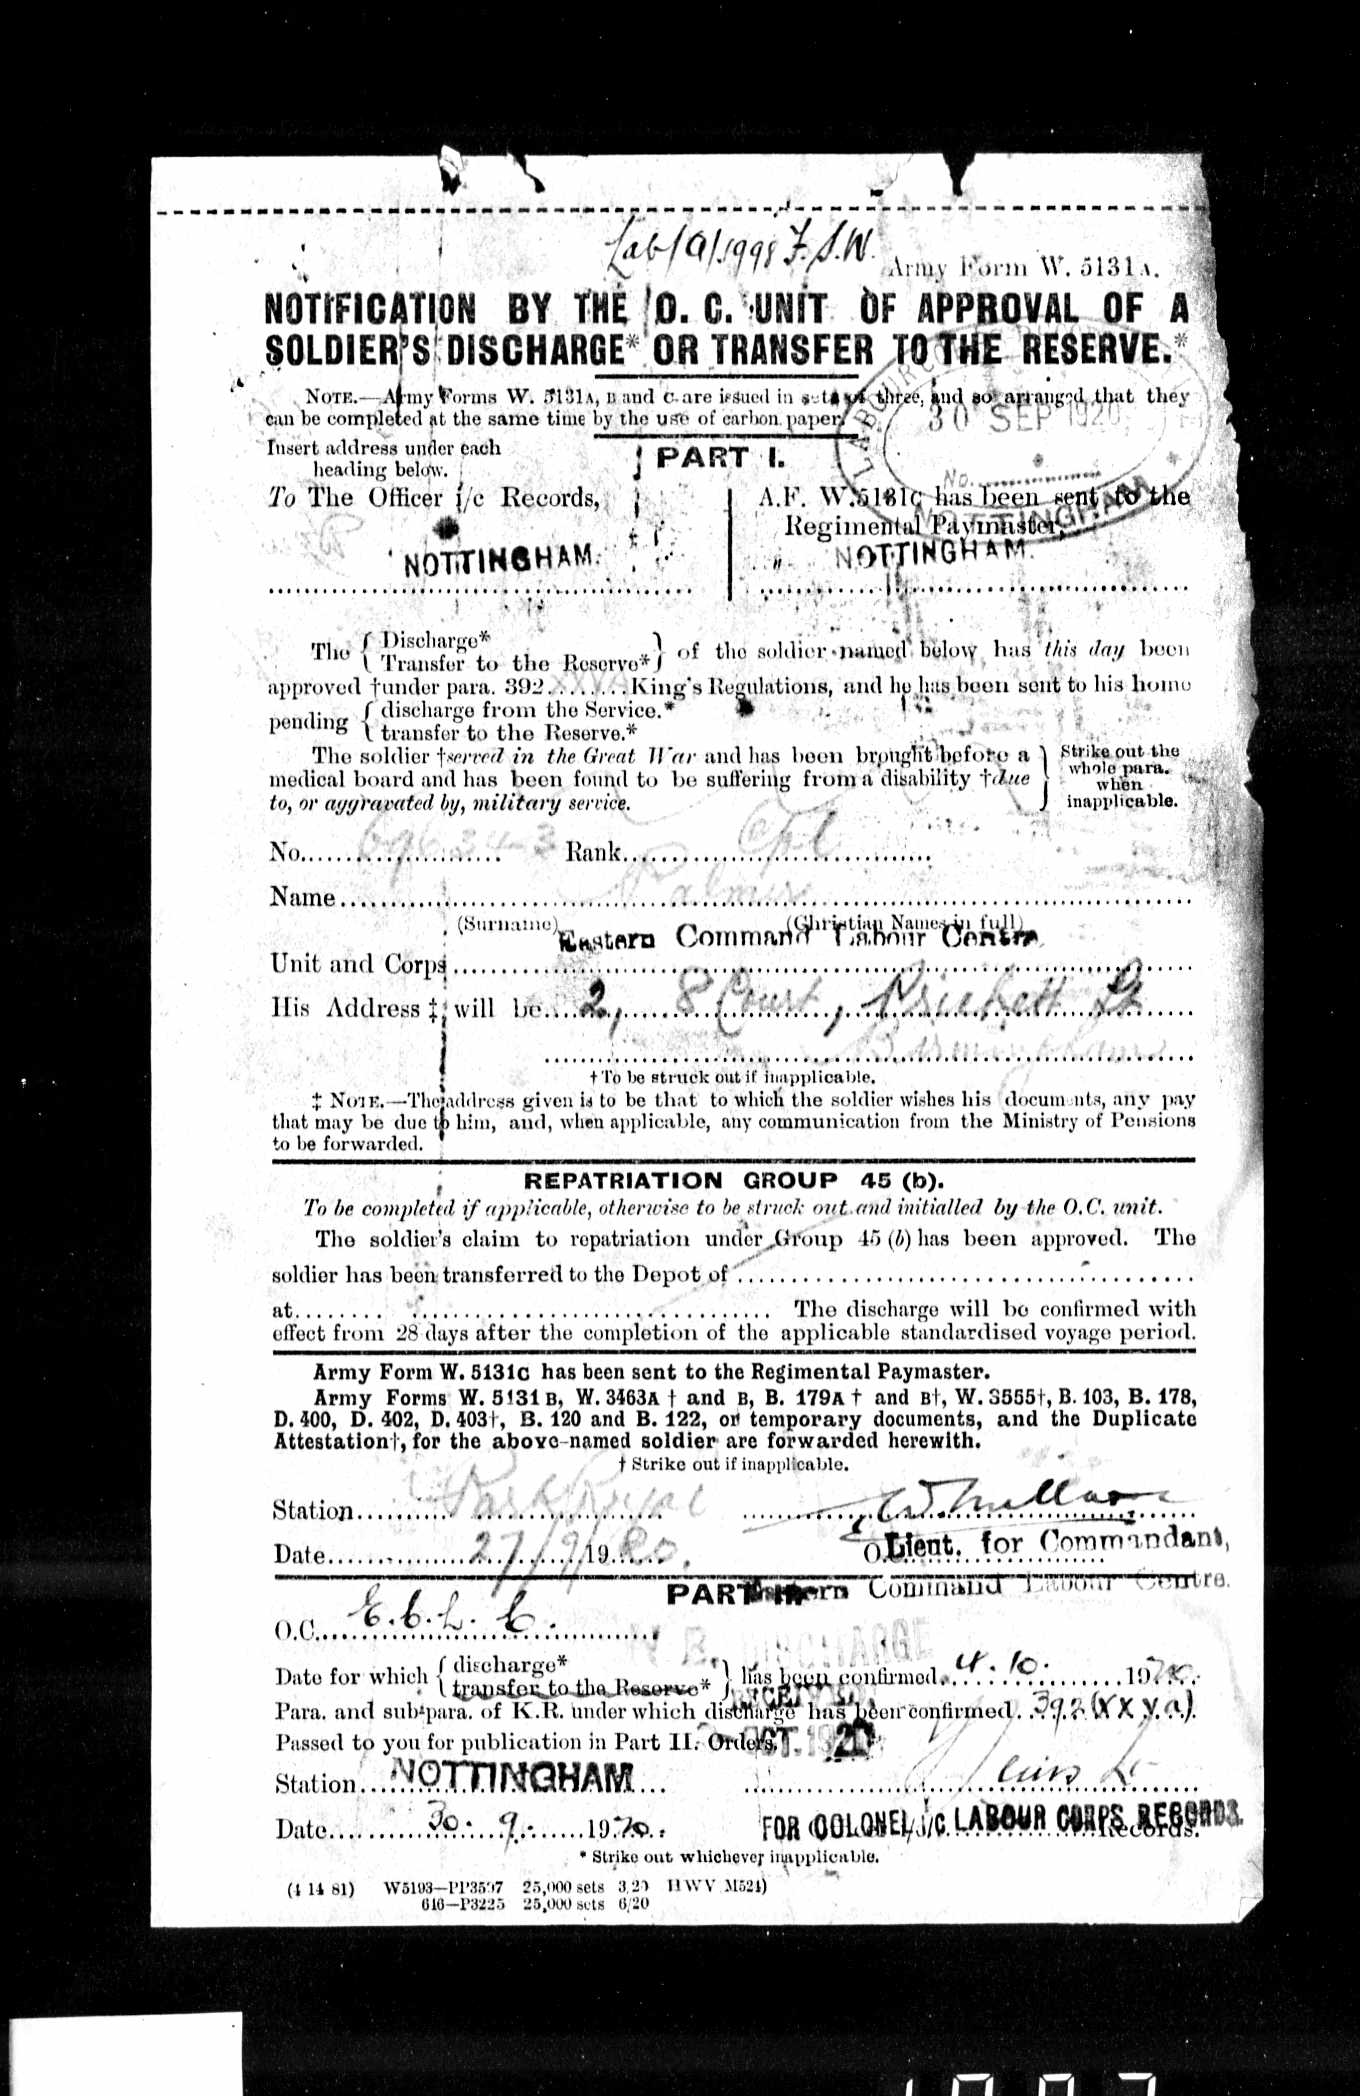 Lab/A/1998 F.S.W.
Army Form W. 5131A.
NOTIFICATION BY THE O. C. UNIT OF APPROVAL OF A
SOLDIER'S DISCHARGE* OR TRANSFER TO THE RESERVE.*
NOTE.—Army Forms W. 5131A, B and C are issued in sets of three, and so arranged that they
can be completed at the same time by the use of carbon paper.
30 SEP 1920
Insert address under each
heading below.
PART I.
No.
To The Officer i/c Records,
A.F. W. 5131C has been sent to the
Regimental Paymaster,
NOTTINGHAM
NOTTINGHAM.
NOTTINGHAM.
The { Discharge* Transfer to the Reserve* } of the soldier named below has this day been
approved †under para. 392 XXVA King's Regulations, and he has been sent to his home
pending { discharge from the Service.* transfer to the Reserve.*
The soldier †served in the Great War and has been brought before a
medical board and has been found to be suffering from a disability †due
to, or aggravated by, military service.
Strike out the
whole para.
when
inapplicable.
No. 696343 Rank Cpl
Name Palmer
(Surname) (Christian Names in full)
Eastern Command Labour Centre
Unit and Corps
His Address ‡ will be 2, 8 Court, Prichett St
Birmingham
† To be struck out if inapplicable.
‡ NOTE.—The address given is to be that to which the soldier wishes his documents, any pay
that may be due to him, and, when applicable, any communication from the Ministry of Pensions
to be forwarded.
REPATRIATION GROUP 45 (b).
To be completed if applicable, otherwise to be struck out and initialled by the O.C. unit.
The soldier's claim to repatriation under Group 45 (b) has been approved. The
soldier has been transferred to the Depot of
at The discharge will be confirmed with
effect from 28 days after the completion of the applicable standardised voyage period.
Army Form W. 5131C has been sent to the Regimental Paymaster.
Army Forms W. 5131B, W. 3463A † and B, B. 179A † and B†, W. 3555†, B. 103, B. 178,
D. 400, D. 402, D. 403†, B. 120 and B. 122, or temporary documents, and the Duplicate
Attestation†, for the above-named soldier are forwarded herewith.
† Strike out if inapplicable.
Station Park Royal
Date 27/9/1920.
Lieut. for Commandant,
Eastern Command Labour Centre.
PART II.
O.C. E.C.L.C.
DISCHARGE
Date for which { discharge* transfer to the Reserve* } has been confirmed 4.10.1920.
Para. and sub-para. of K.R. under which discharge has been confirmed 392 (XXVa).
Passed to you for publication in Part II. Orders.
OCT. 1920
Station NOTTINGHAM
Date 30.9.1920.
FOR COLONEL i/c LABOUR CORPS RECORDS.
Records.
* Strike out whichever inapplicable.
(4 14 81) W5193—PP3597 25,000 sets 3/20 HWV M524)
616—P3225 25,000 sets 6/20